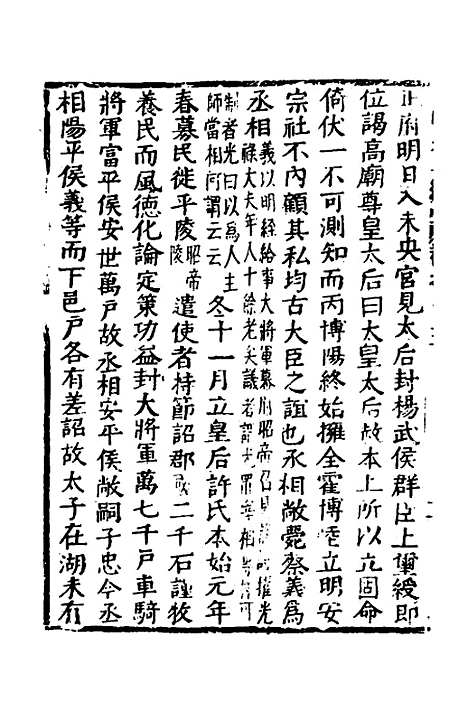 正府明日入未央宮見太后封楊武侯群臣上璽綬即
位謁高廟尊皇太后曰太皇太后故本上所以立固命
倚伏一不可測知而丙博陽終始擁全霍博陸立明安
宗社不內顧其私均古大臣之誼也丞相敞薨蔡義爲
丞相
義以明經給事大將軍幕府昭帝召見擢光
祿大夫年八十餘老矣議者謂光置宰相可
制者光曰以爲人主
師當相何謂云云
冬十一月立皇后許氏本始元年
春募民徙平陵
昭帝
陵
遣使者持節詔郡二千石謹牧
養民而風德化論定策功益封大將軍萬七千戶車騎
將軍富平侯安世萬戶故丞相安平侯敞嗣子忠今丞
相陽平侯義等而下邑戶各有差詔故太子在湖未有